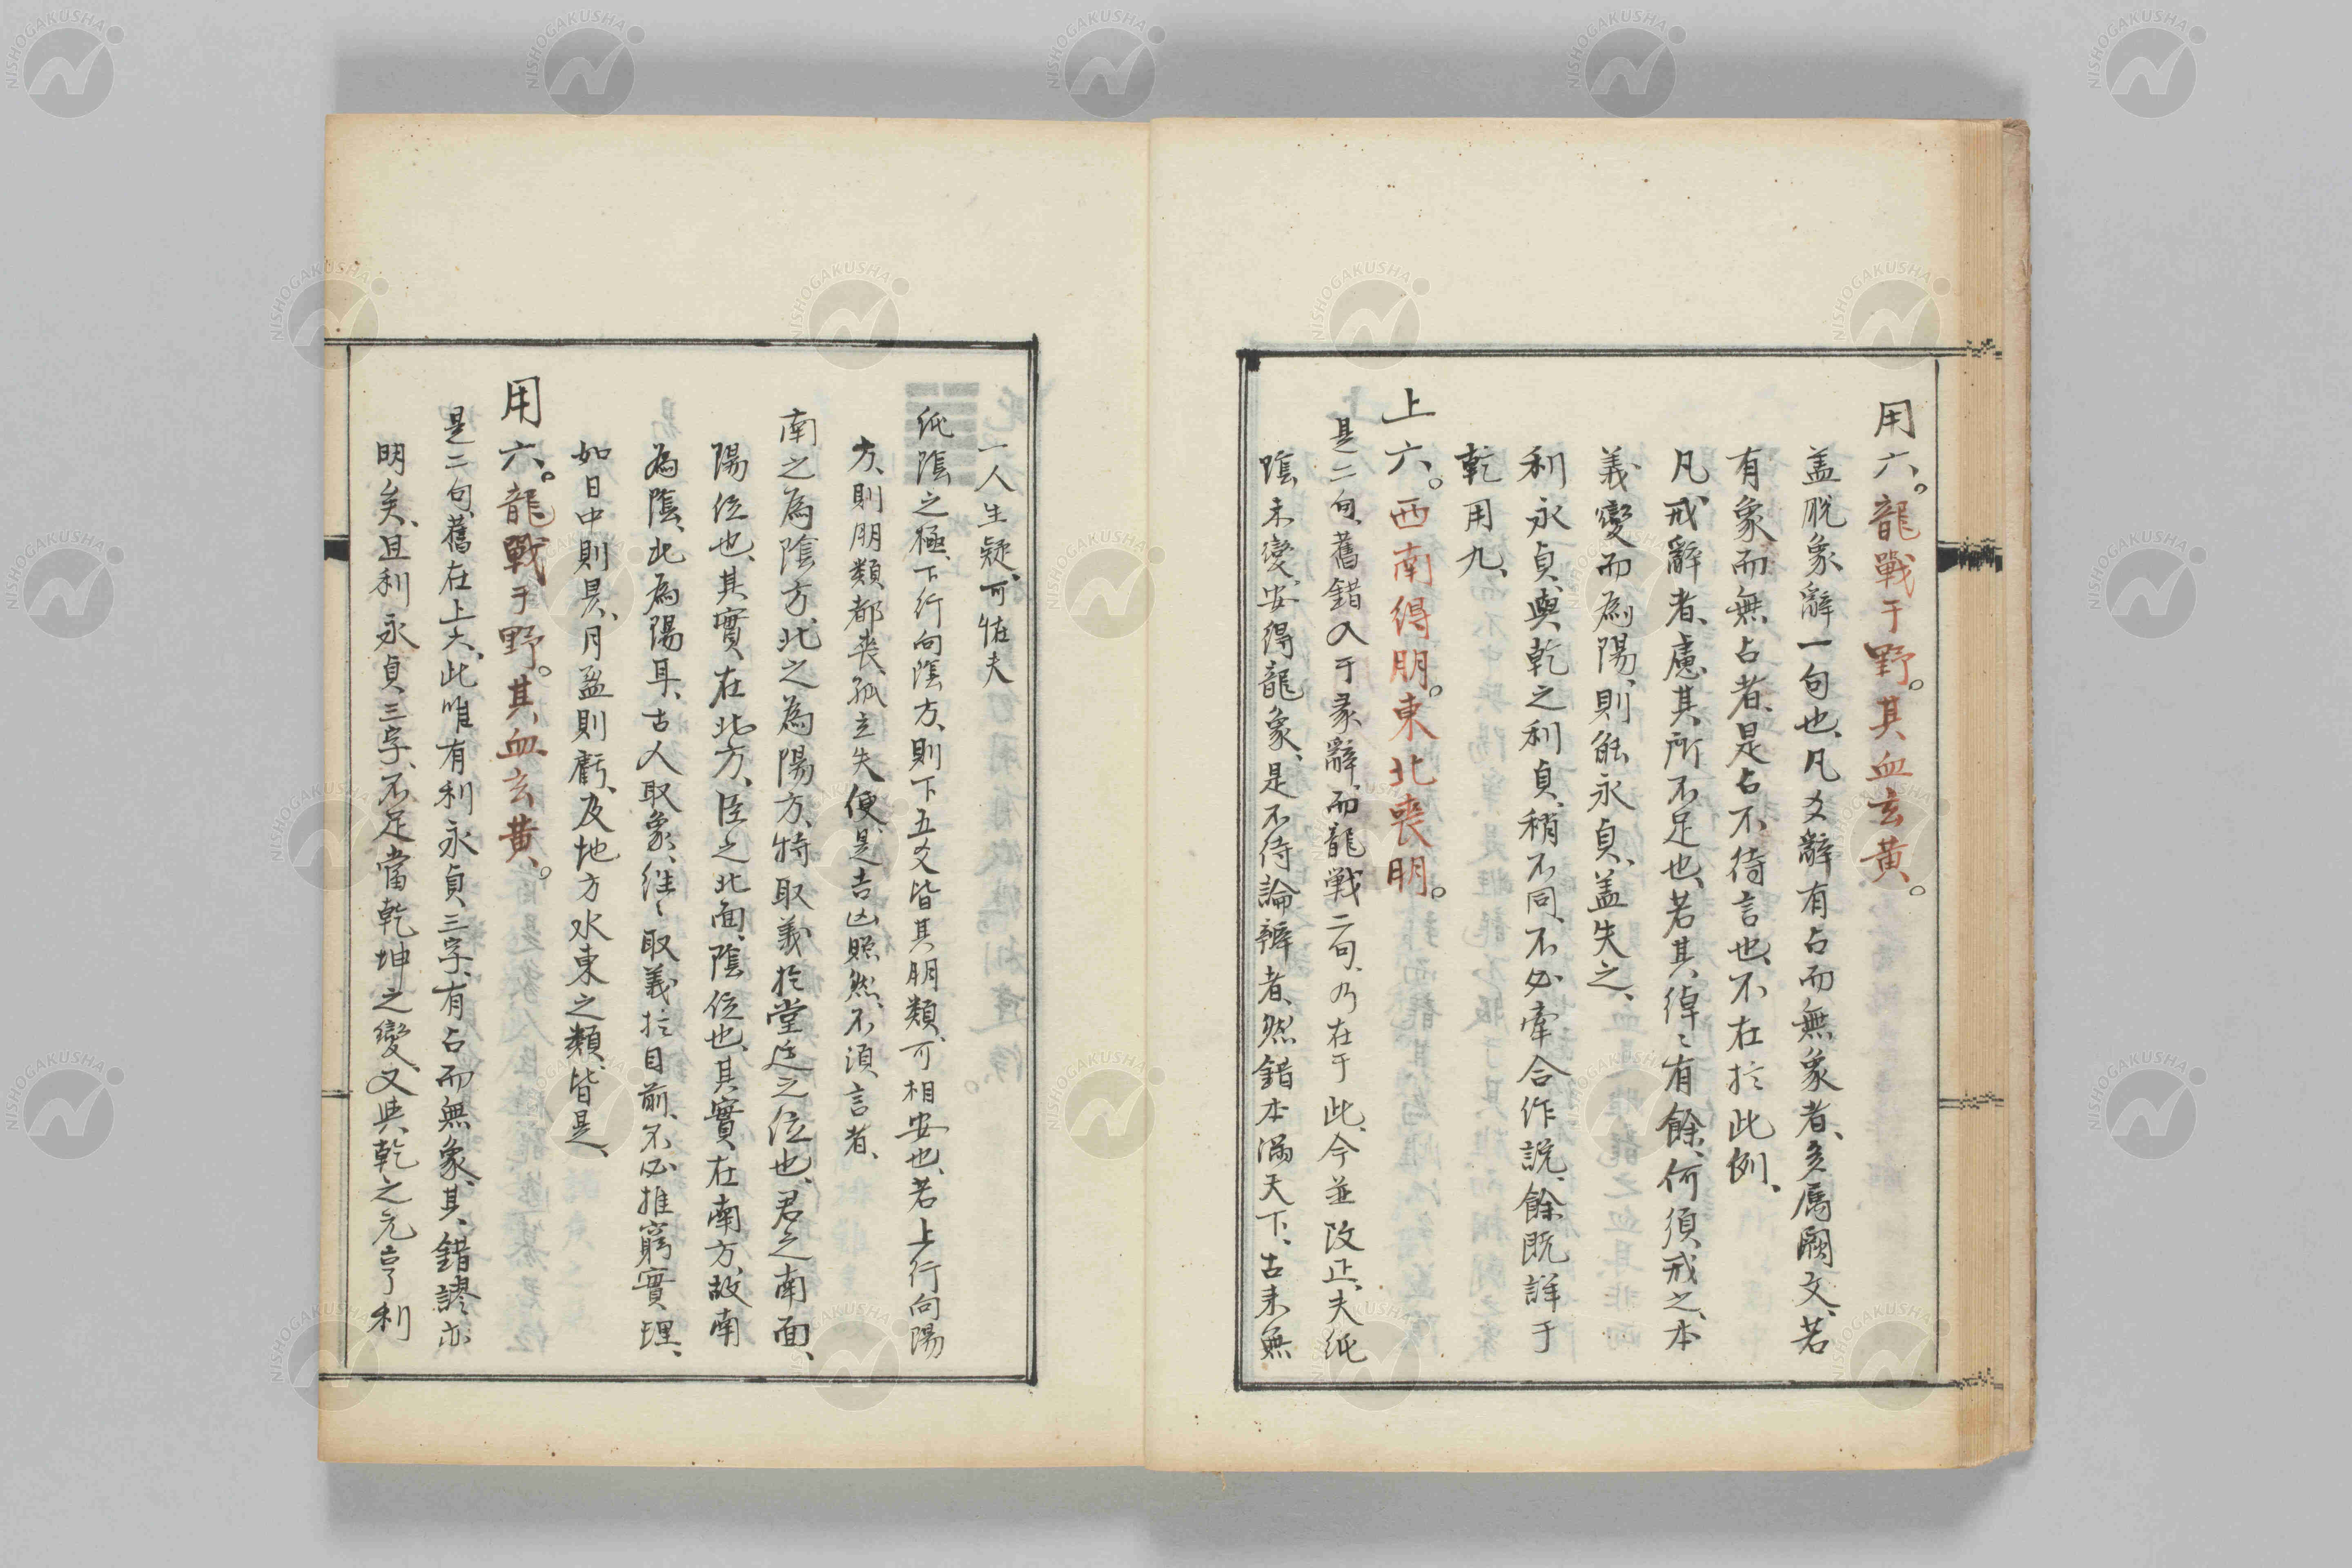 用六。龍戰于野。其血玄黄。
盖脱象辭一句也、凡爻辭有占而無象者、多属闕文、若
有象而無占者、是占不待言也、不在於此例、
凡戒辭者、慮其所不足也、若其綽〻有餘、何須戒之、本
義變而為陽、則能永貞、盖失之、
利永貞、與乾之利貞、稍不同、不必牽合作説、餘既詳于
乾用九、
上六。西南得朋。東北喪朋。
是二句、舊錯入于彖辭、而龍戦二句、乃在于此、今並改正、夫純
陰未變、安得龍象、是不待論辨者、然錯本満天下、古来無
一人生疑、可怪夫
純陰之極、下行向陰方、則下五爻皆其朋類、可相安也、若上行向陽
方、則朋類都喪、孤立失便、是吉凶照然、不須言者、
南之為陰方、北之為陽方、特取義於堂廷之位也、君之南面、
陽位也、其實在北方、臣之北面、陰位也、其實在南方、故南
為陰、北為陽耳、古人取象、往〻取義於目前、不必推窮實理、
如日中則昃、月盈則虧、及地方水東之類、皆是、
用六。龍戰于野。其血玄黄。
是二句、舊在上六、此唯有利永貞三字、有占而無象、其錯謬亦
明矣、且利永貞三字、不足當乾坤之變、又與乾之元亨利
NISHOGAKUSHA